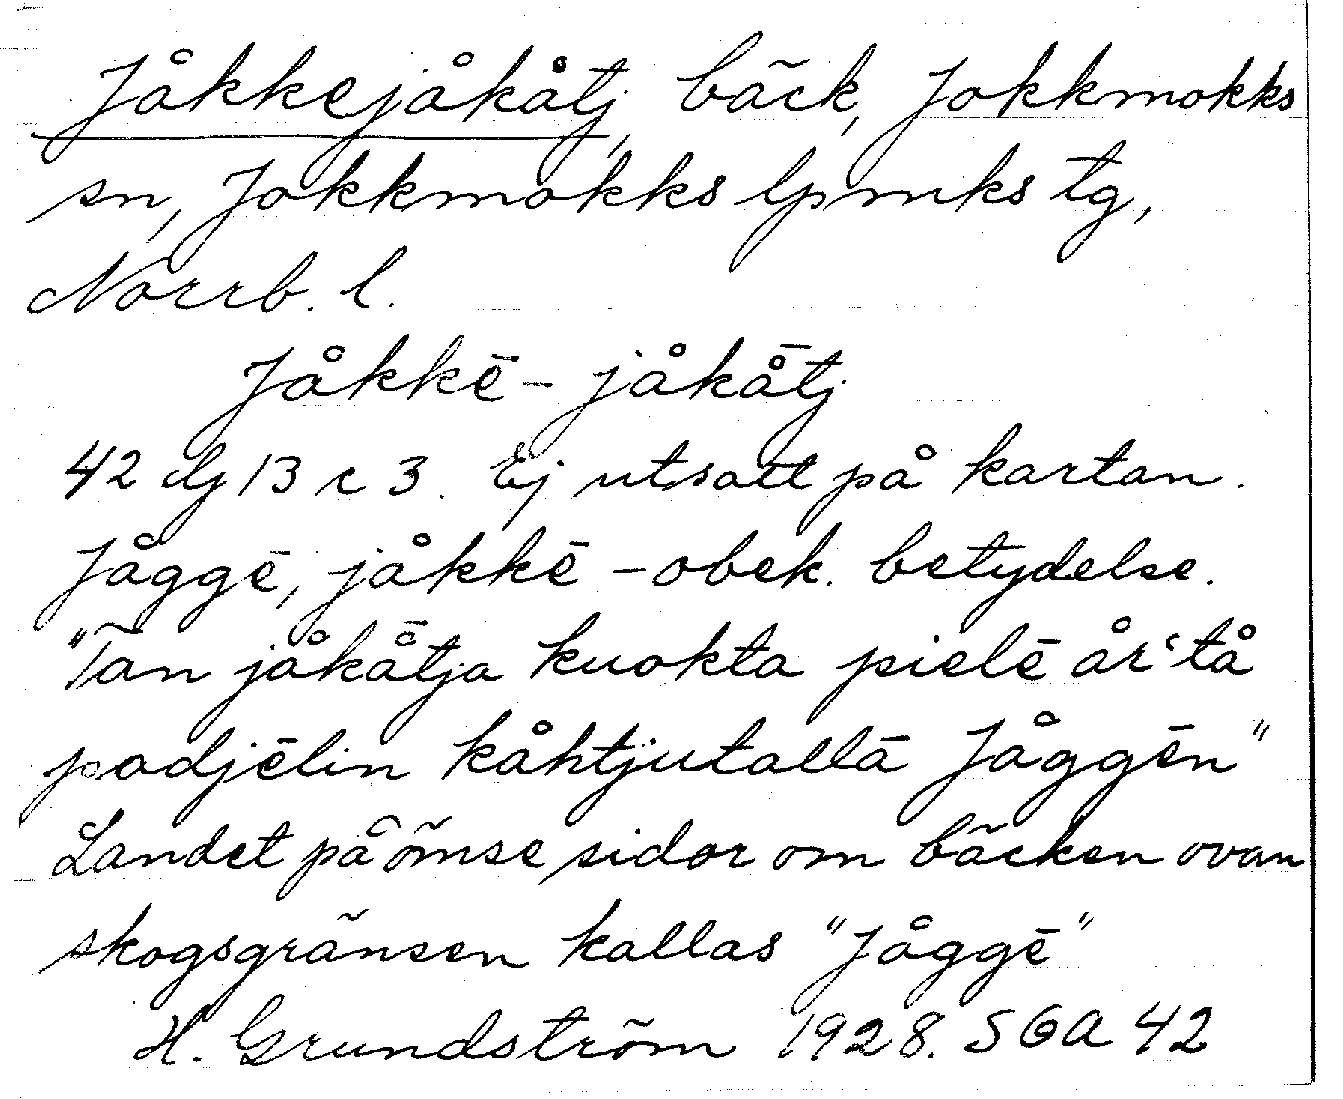 Jåkkejåkåtj, bäck, Jokkmokks
sn, Jokkmokks lpmks tg,
Norrb. l.
Jåkkē - jåkå̄tj
42 dj 13 c 3. Ej utsatt på kartan.
Jåggē, jåkkē - obek. betydelse.
"Tan jåkå̄tja kuokta pielē år'tå
padjēlin kåhtjutallā Jåggēn"
Landet på ömse sidor om bäcken ovan
skogsgränsen kallas "Jåggē"
H. Grundström 1928. SOA 42